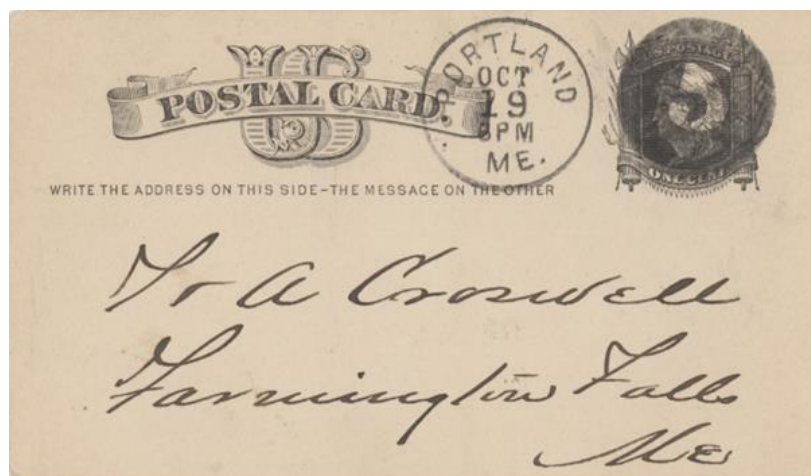 US
POSTAL CARD.
PORTLAND
OCT
19
6PM
ME.
U.S. POSTAGE
ONE CENT
WRITE THE ADDRESS ON THIS SIDE-THE MESSAGE ON THE OTHER
A Croswell
Farmington Falls
Me